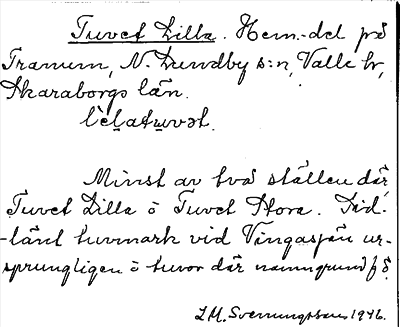 Tuvet Lilla. Hem.-del på
Tranum, N. Lundby s:n, Valle hr,
Skaraborgs län.
Minst av två ställen där,
Tuvet Lilla o Tuvet Stora. Sid-
-länt tuvmark vid Vingasjön ur-
sprungligen o tuvor där namngrund f ö.
L M. Svenungsson 1946.